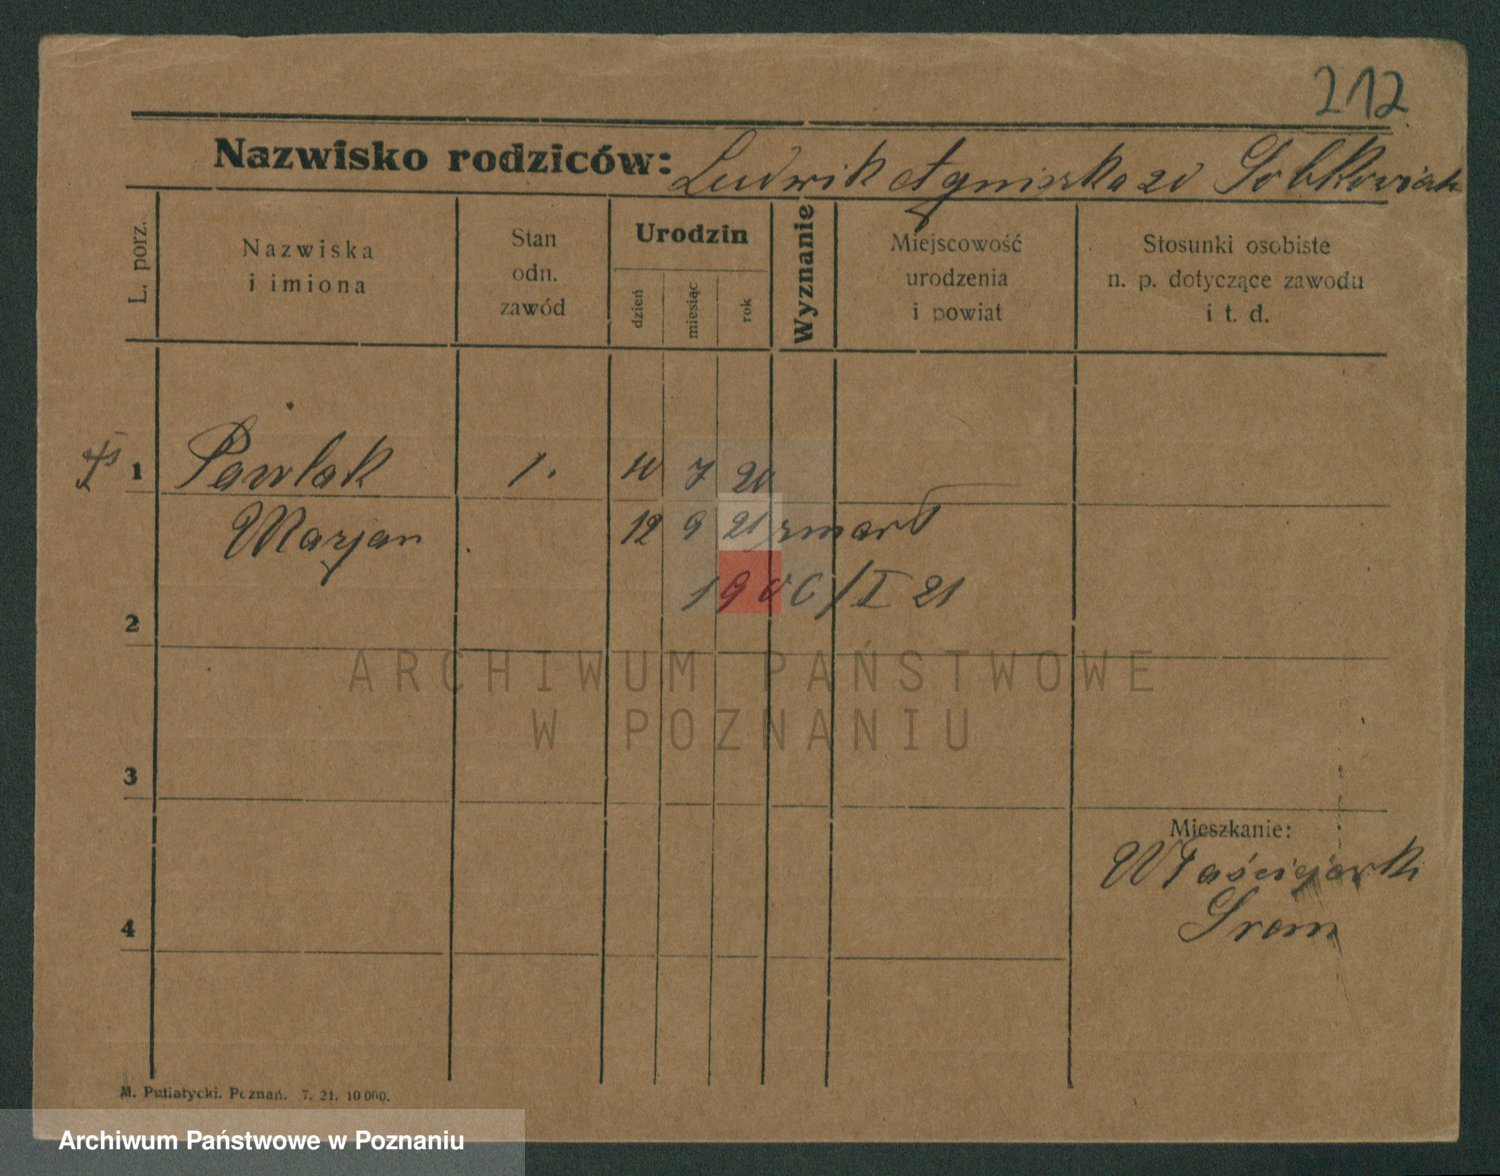 212
Nazwisko rodziców: Ludwik Agniszka zd Sobkowiak
L. porz.
Nazwiska
i imiona
Stan
odn.
zawód
Urodzin
dzień
miesiąc
rok
Wyznanie
Miejscowość
urodzenia
i powiat
Stosunki osobiste
n. p. dotyczące zawodu
i t. d.
1 Pawlak 1. 10 7 20
Marjan 12 9 21 zmarł
190 /I 21
2
3
4
Mieszkanie:
Srem
M. Putiatycki. Poznań. 7. 21. 10 000.
ARCHIWUM PAŃSTWOWE
W POZNANIU
Archiwum Państwowe w Poznaniu